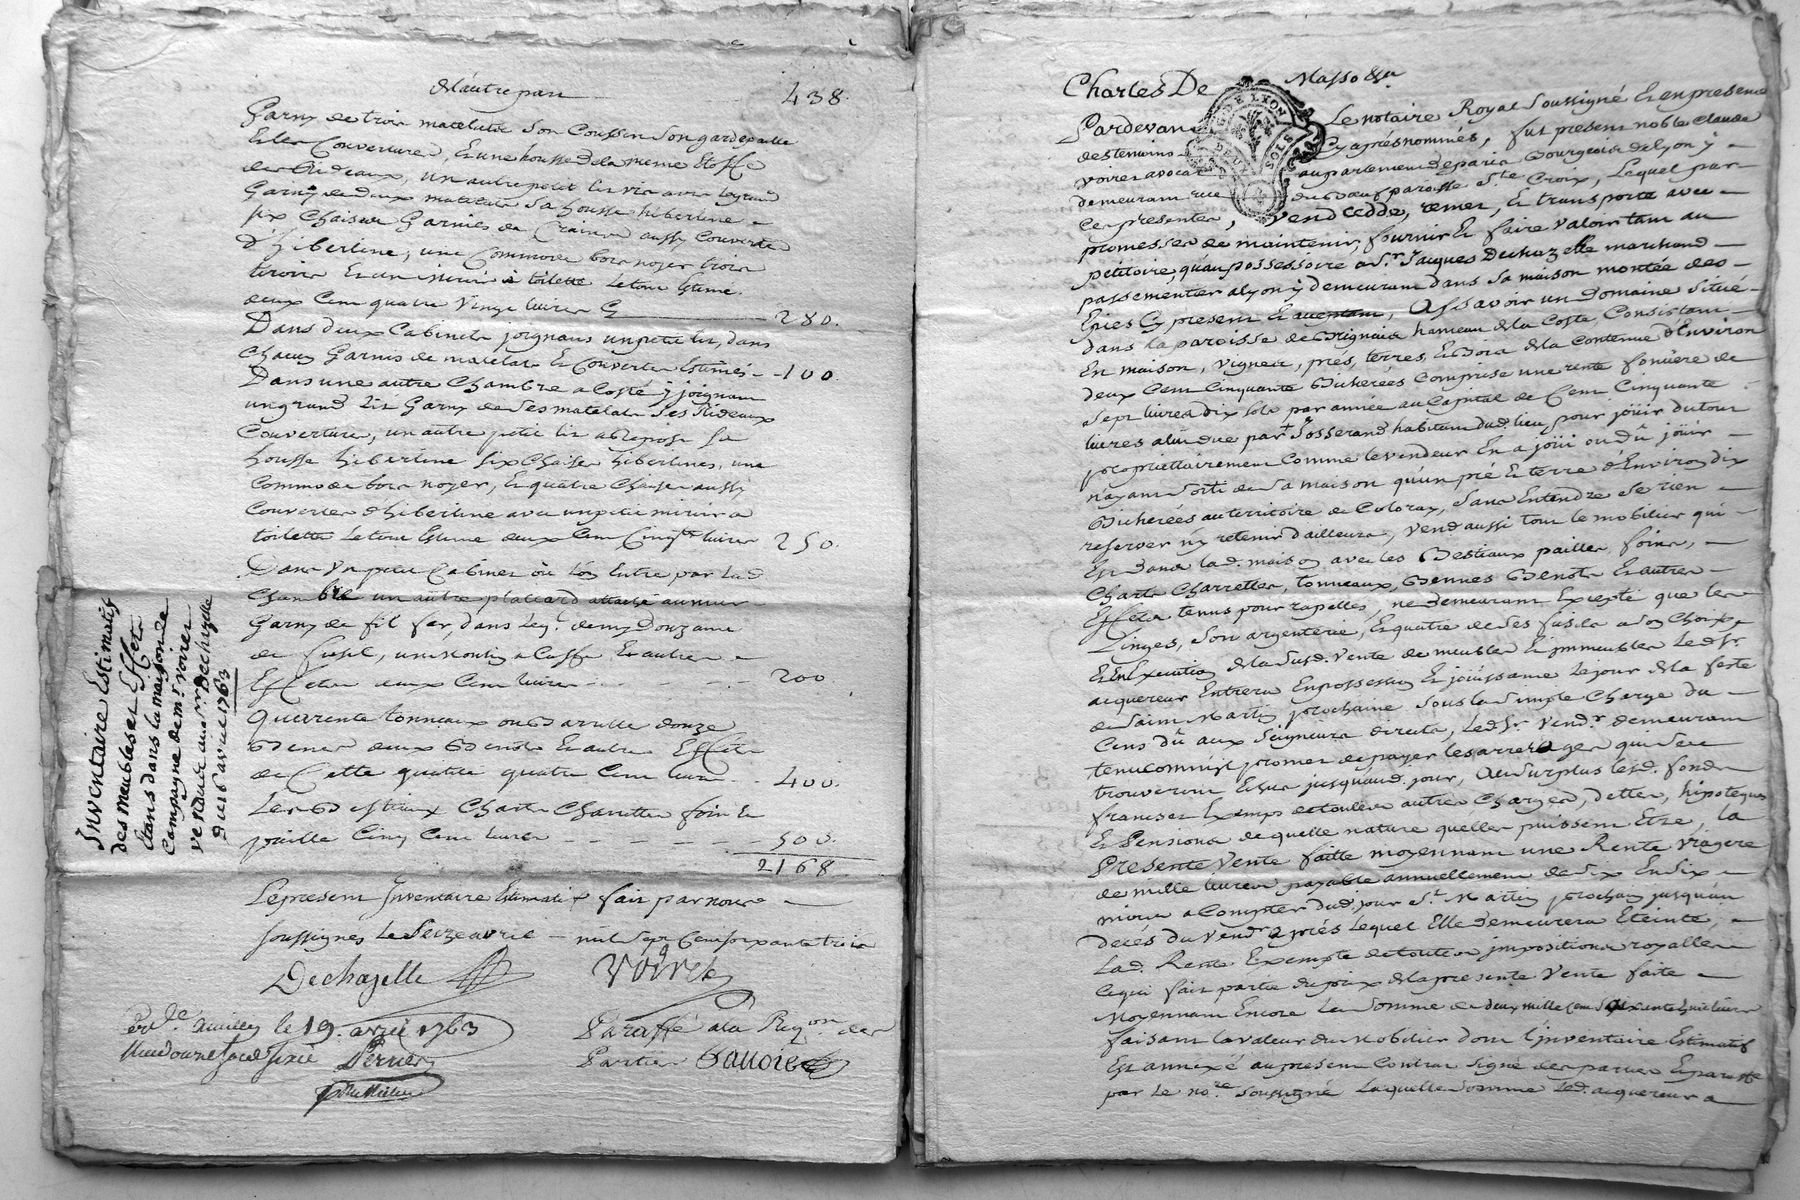 De l'autre part 438.
Garny de trois matelats son Coussin son gardepaille
Et les Couvertures, Et une housse de la meme Etoffe
des Rideaux, un autre petit lit
Garny de deux matelats sa housse hiberline
six Chaises Garnies de Crain aussy Couvertes
d'hiberline, une Commode bois noyer trois
tiroirs Et un miroir à toilette Le tout Estimé
deux Cent quatre Vingt livres Cy 280.
Dans deux Cabinets joignants un petit lit, dans
Chacun Garnis de matelats Et Couvertes Estimés 100.
Dans une autre Chambre a Costé y joignant
un grand lit Garny de Ses matelats Ses Rideaux
Couvertures, un autre petit lit a Repose Sa
housse hiberline Six Chaises hiberlines, une
Commode bois noyer, Et quatre Chaises aussy
Couvertes d'hiberline avec un petit miroir a
toilette Le tout Estimé deux Cent Cinqte livres 250.
Dans Un petit Cabinet où L'on Entre par Lad.
Chambre un autre placard attaché au mur
Garny de fil fer, dans Leql. demy Douzaine
de fusil, un moulin a Caffé Et autres
Effets deux Cent livres 200
Quarente tonneaux ou Barrille douze
Benes deux Benots Et autres Effets
de Cette qualité quatre Cent livres 400.
Les Bestiaux Chars Charettes foin Et
paille Cinq Cent livres 500.
2168
Le present Inventaire Estimatif fait par nous
soussignés Le Seize avril mil Sept Cent soixante trois
Dechazelle Voiret
le 19. avril 1763 Paraffé a la Reqon des
Perrier Parties
Inventaire Estimatif
des meubles et Effets
Etans dans la maison de
Campagne de mr. Voiret
Vendue au sr. Dechazelle
Du 16 avril 1763
Charles De Masso &a
Pardevant Le notaire Royal Soussigné Et en presence
des temoins Cy après nommés, fut present noble Claude
Voiret avocat au parlement de paris Bourgeois de Lyon y
demeurant rue du Bœuf paroisse Ste Croix, Lequel par
Ces presentes, Vend Cedde, remet, Et transporte avec
promesses de maintenir, fournir Et faire Valoir tant au
petitoire, qu'au possessoire a Sr. Jaques Dechazelle marchand
passementier a Lyon y demeurant dans Sa maison montée des
Epies Cy present Et acceptant, assavoir un Domaine Situé
dans la paroisse de Grignais hameau de la Coste, Consistant
En maison, vignes, prés, terres, Et Bois de la Contenue d'Environ
deux Cent Cinquante Bicherées Comprise une rente fonciere de
Sept livres dix sols par année au Capital de Cent Cinquante
livres a lui due par Josserand habitant dud. lieu, pour joüir du tout
proprietairement Comme le vendeur En a joüi ou dû joüir
n'ayant Sorti de Sa maison qu'un pré Et terre d'Environ dix
Bicherées au territoire de Coloray, Sans Entendre Se rien
reserver ny retenir d'ailleurs, Vend aussi tout le mobilier qui
Est dans lad. maison avec les Bestiaux pailles, foins,
Chars Charrettes, tonneaux, Bennes Benots Et autres
Effets tenus pour rapellés, ne demeurant Excepté que les
Linges, Son argenterie, Et quatre de Ses fusils a Son Choix,
En Execution de la Susd. Vente de meubles Et immeubles Led. Sr.
acquereur Entrera En possession Et joüissance Le jour de la feste
de Saint Martin prochaine Sous la Simple Charge du
Cens dû aux Seigneurs directs, Led. Sr. Vendr. demeurant
tenu comm'il promet de payer les arrerages qui Se
trouveront Echus jusquaud. jour, au Surplus lesd. fonds
francs Et Exempts de toutes autres Charges, dettes, hipoteques
Et Pensions de quelle nature quelles puissent Etre, la
Presente Vente faitte moyennant une Rente Viagere
de mille livres payable annuellement de Six En Six
mois a Compter dud. jour St. Martin prochain jusqu'au
decés du Vendr. après Lequel Elle demeurera Eteinte,
Lad. Rente Exempte de toutes impositions royalles
Ce qui fait partie du prix de la presente Vente faite
Moyennant Encore La Somme de deux mille Cent Soixante huit livres
faisant la valeur du Mobilier dont l'inventaire Estimatif
Est annéxé au present Contrat Signé des parties Et paraffé
par Le nore. soussigné Laquelle Somme Led. acquereur a